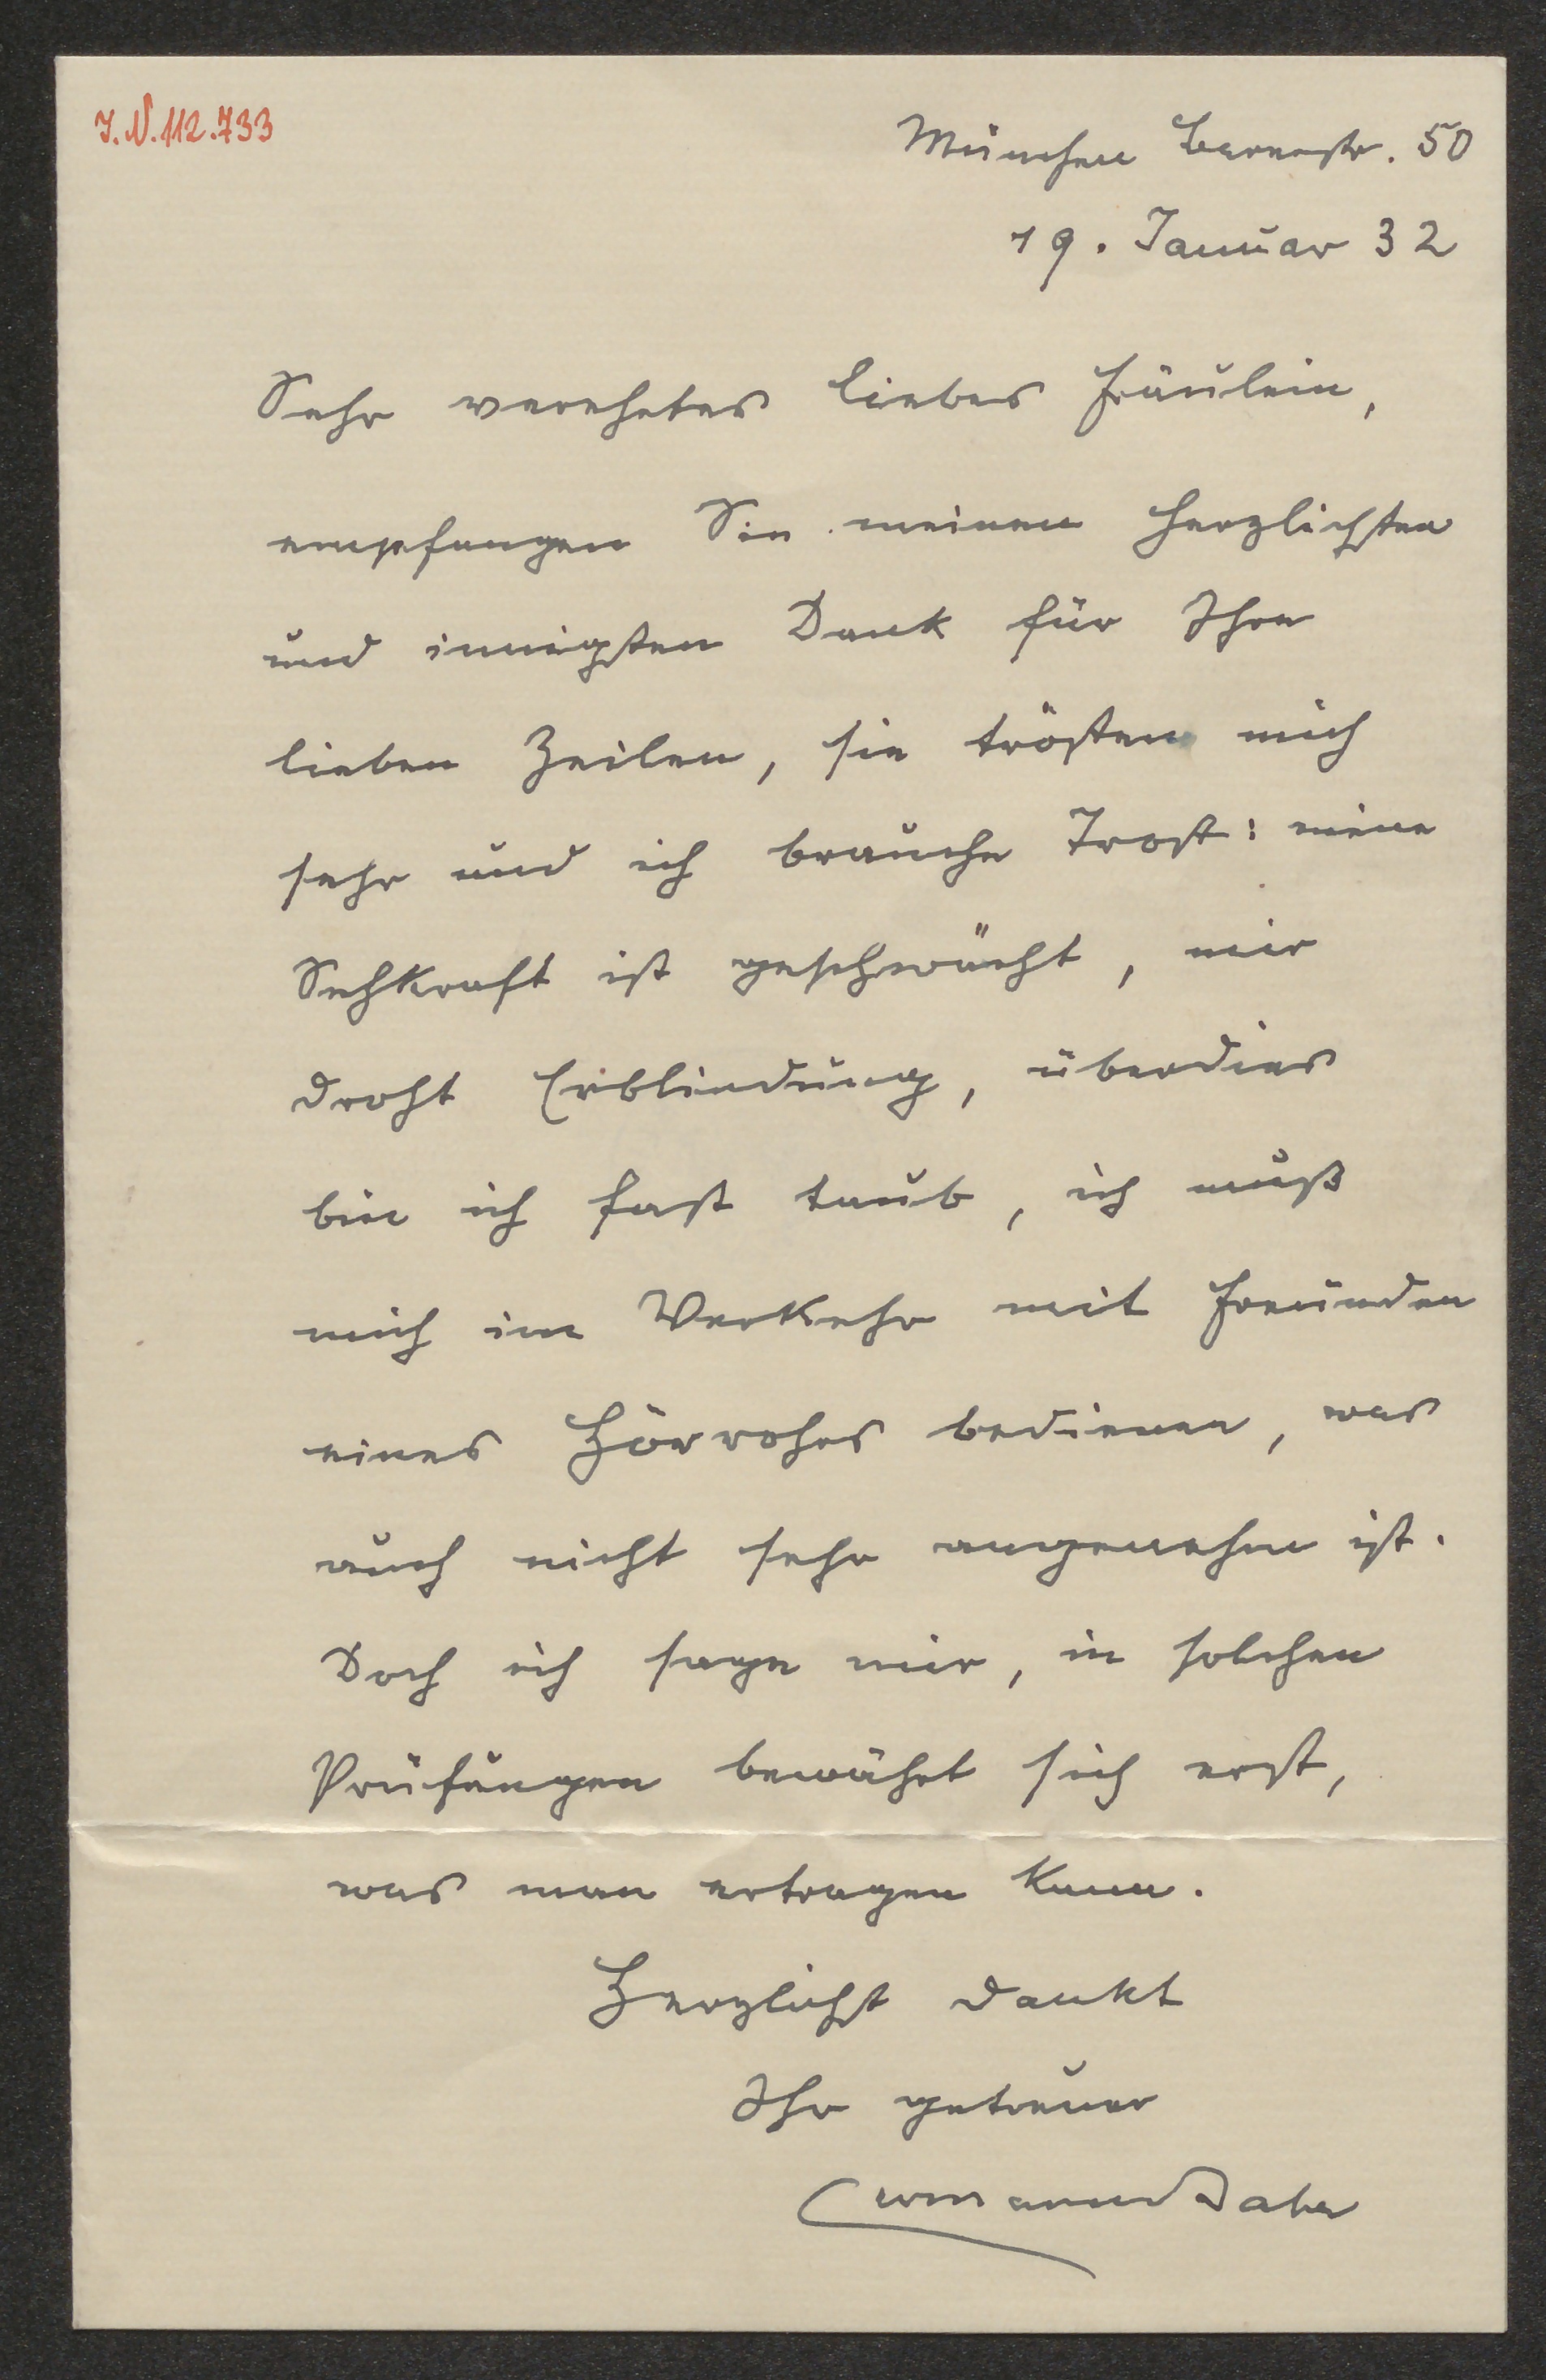 I.N.112.733
München Barerstr. 50
19. Januar 32
Sehr verehrtes liebes Fräulein,
empfangen Sie meinen herzlichsten
und innigsten Dank für Ihre
lieben Zeilen, sie trösten mich
sehr und ich brauche Trost: meine
Sehkraft ist geschwächt, mir
droht Erblindung, überdies
bin ich fast taub, ich muß
mich im Verkehr mit Freunden
eines Hörrohrs bedienen, was
auch nicht sehr angenehm ist.
Doch ich sage mir, in solchen
Prüfungen bewährt sich erst,
was man ertragen kann.
Herzlichst dankt
Ihr getreuer
HermannBahr